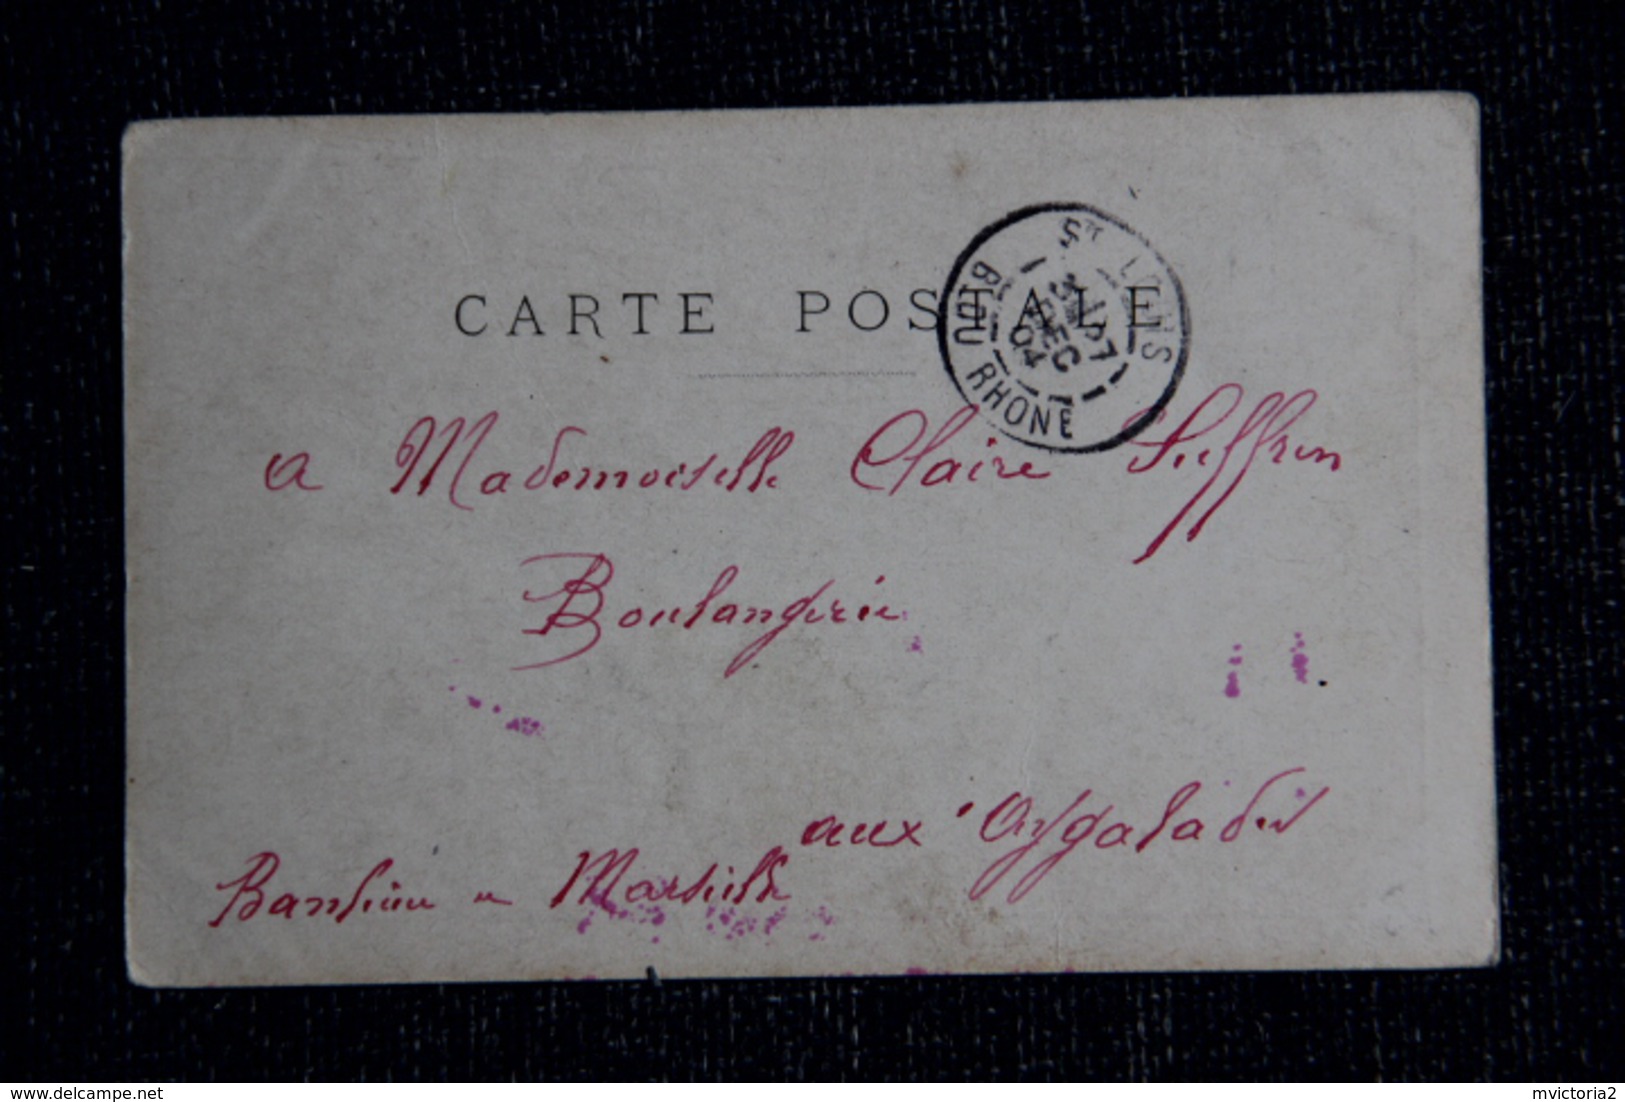 CARTE POSTALE
BDU RHONE
DEC
04
a Mademoiselle Claire Suffren
Boulangerie
aux Aygalades
Banlieue Marseille
delcampe.net
mvictoria2